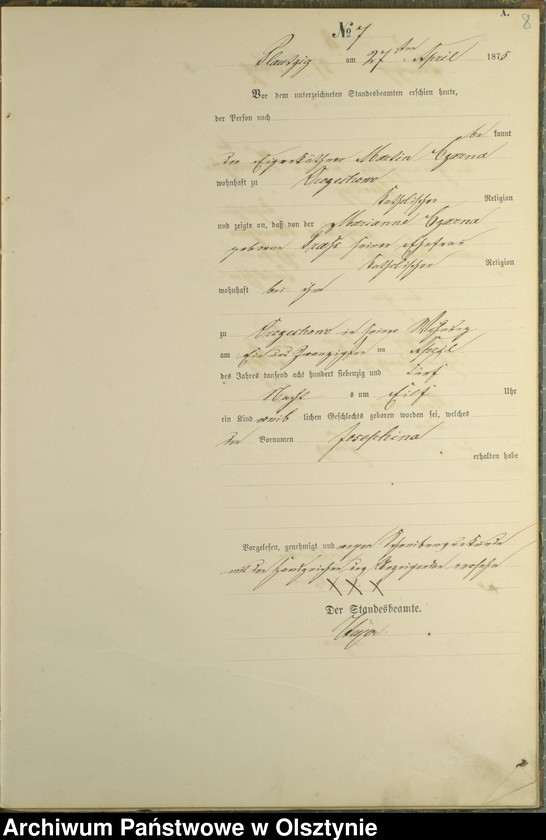 A.
8
No 7
am 27ten April 1875
Vor dem unterzeichneten Standesbeamten erschien heute,
der Person nach
be kannt
der Eigenkäthner Martin Czarna
wohnhaft zu
katholischer Religion
und zeigte an, daß von der Marianne Czarna
geborene seiner Ehefrau
katholischer Religion
wohnhaft bei ihm
zu in seiner Wohnung
am Ein und zwanzigsten im April
des Jahres tausend acht hundert siebenzig und fünf
Nacht s um Eilf Uhr
ein Kind weib lichen Geschlechts geboren worden sei, welches
den Vornamen Josephina
erhalten habe
Vorgelesen, genehmigt und wegen
mit den Handzeichen des Anzeigenden versehen
X X X
Der Standesbeamte.
Archiwum Państwowe w Olsztynie